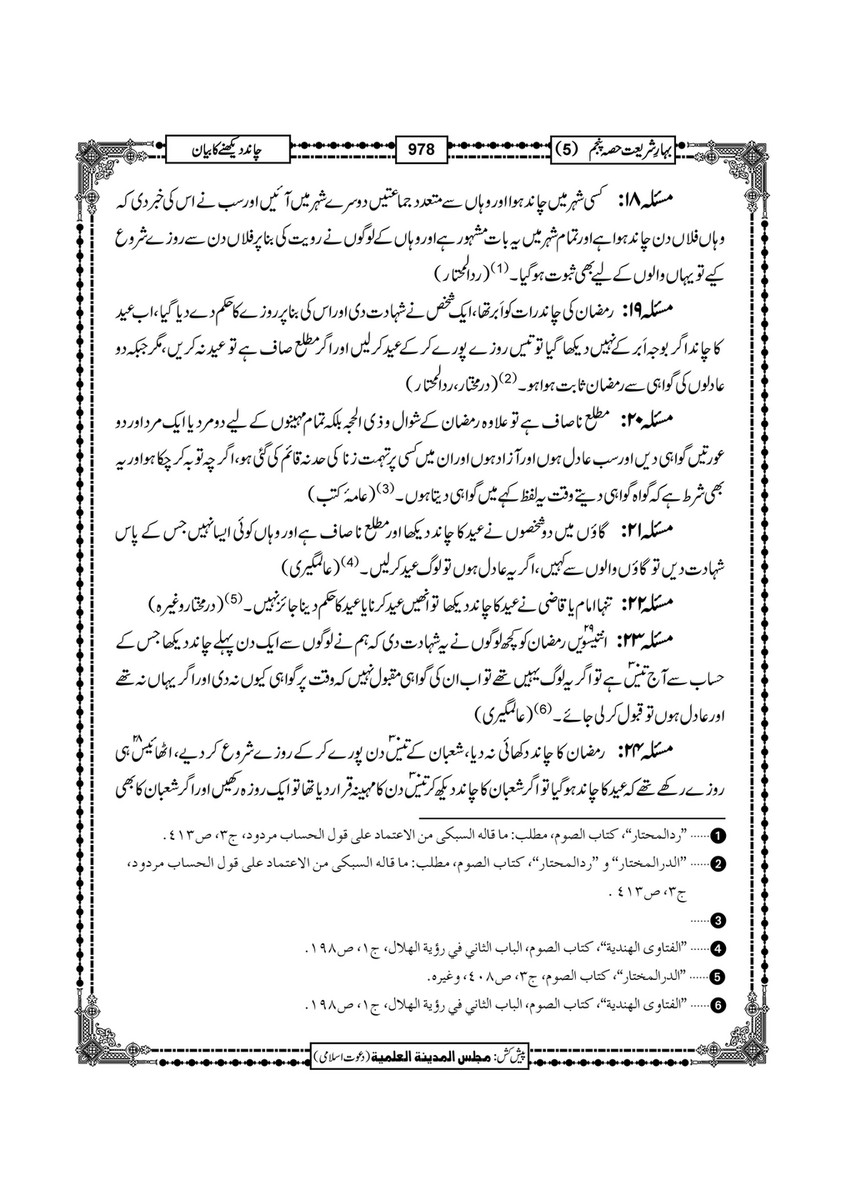 بہارِشریعت حصہ پنجم (5)
978
چاند دیکھنے کا بیان
مسئلہ ۱۸: کسی شہر میں چاند ہوا اور وہاں سے متعدد جماعتیں دوسرے شہر میں آئیں اور سب نے اس کی خبر دی کہ
وہاں فلاں دن چاند ہوا ہے اور تمام شہر میں یہ بات مشہور ہے اور وہاں کے لوگوں نے رویت کی بنا پر فلاں دن سے روزے شروع
کیے تو یہاں والوں کے لیے بھی ثبوت ہوگیا۔(1) (ردالمحتار)
مسئلہ ۱۹: رمضان کی چاند رات کو اَبر تھا، ایک شخص نے شہادت دی اور اس کی بنا پر روزے کا حکم دے دیا گیا، اب عید
کا چاند اگر بوجہ اَبر کے نہیں دیکھا گیا تو تیس روزے پورے کر کے عید کر لیں اور اگر مطلع صاف ہے تو عید نہ کریں، مگر جبکہ دو
عادلوں کی گواہی سے رمضان ثابت ہوا ہو۔(2) (درمختار، ردالمحتار)
مسئلہ ۲۰: مطلع ناصاف ہے تو علاوہ رمضان کے شوال و ذی الحجہ بلکہ تمام مہینوں کے لیے دو مرد یا ایک مرد اور دو
عورتیں گواہی دیں اور سب عادل ہوں اور آزاد ہوں اور ان میں کسی پر تہمتِ زنا کی حد نہ قائم کی گئی ہو، اگرچہ توبہ کر چکا ہو اور یہ
بھی شرط ہے کہ گواہ گواہی دیتے وقت یہ لفظ کہے میں گواہی دیتا ہوں۔(3) (عامۂ کتب)
مسئلہ ۲۱: گاؤں میں دو شخصوں نے عید کا چاند دیکھا اور مطلع ناصاف ہے اور وہاں کوئی ایسا نہیں جس کے پاس
شہادت دیں تو گاؤں والوں سے کہیں، اگر یہ عادل ہوں تو لوگ عید کر لیں۔(4) (عالمگیری)
مسئلہ ۲۲: تنہا امام یا قاضی نے عید کا چاند دیکھا تو انھیں عید کرنا یا عید کا حکم دینا جائز نہیں۔(5) (درمختار وغیرہ)
مسئلہ ۲۳: انتیسویں۲۹ رمضان کو کچھ لوگوں نے یہ شہادت دی کہ ہم نے لوگوں سے ایک دن پہلے چاند دیکھا جس کے
حساب سے آج تیس۳۰ ہے تو اگر یہ لوگ یہیں تھے تو اب ان کی گواہی مقبول نہیں کہ وقت پر گواہی کیوں نہ دی اور اگر یہاں نہ تھے
اور عادل ہوں تو قبول کر لی جائے۔(6) (عالمگیری)
مسئلہ ۲۴: رمضان کا چاند دکھائی نہ دیا، شعبان کے تیس۳۰ دن پورے کر کے روزے شروع کر دیے، اٹھائیس۲۸ ہی
روزے رکھے تھے کہ عید کا چاند ہوگیا تو اگر شعبان کا چاند دیکھ کر تیس۳۰ دن کا مہینہ قرار دیا تھا تو ایک روزہ رکھیں اور اگر شعبان کا بھی
1 ...... ”ردالمحتار“، کتاب الصوم، مطلب: ما قاله السبکی من الاعتماد علی قول الحساب مردود، ج۳، ص۴۱۳.
2 ...... ”الدرالمختار“ و ”ردالمحتار“، کتاب الصوم، مطلب: ما قاله السبکی من الاعتماد علی قول الحساب مردود،
ج۳، ص۴۱۳ .
3 ......
4 ...... ”الفتاوی الهندية“، کتاب الصوم، الباب الثاني في رؤية الهلال، ج۱، ص۱۹۸.
5 ...... ”الدرالمختار“، کتاب الصوم، ج۳، ص۴۰۸، وغیره.
6 ...... ”الفتاوی الهندية“، کتاب الصوم، الباب الثاني في رؤية الهلال، ج۱، ص۱۹۸.
پیش کش: مجلس المدينة العلمية (دعوت اسلامی)